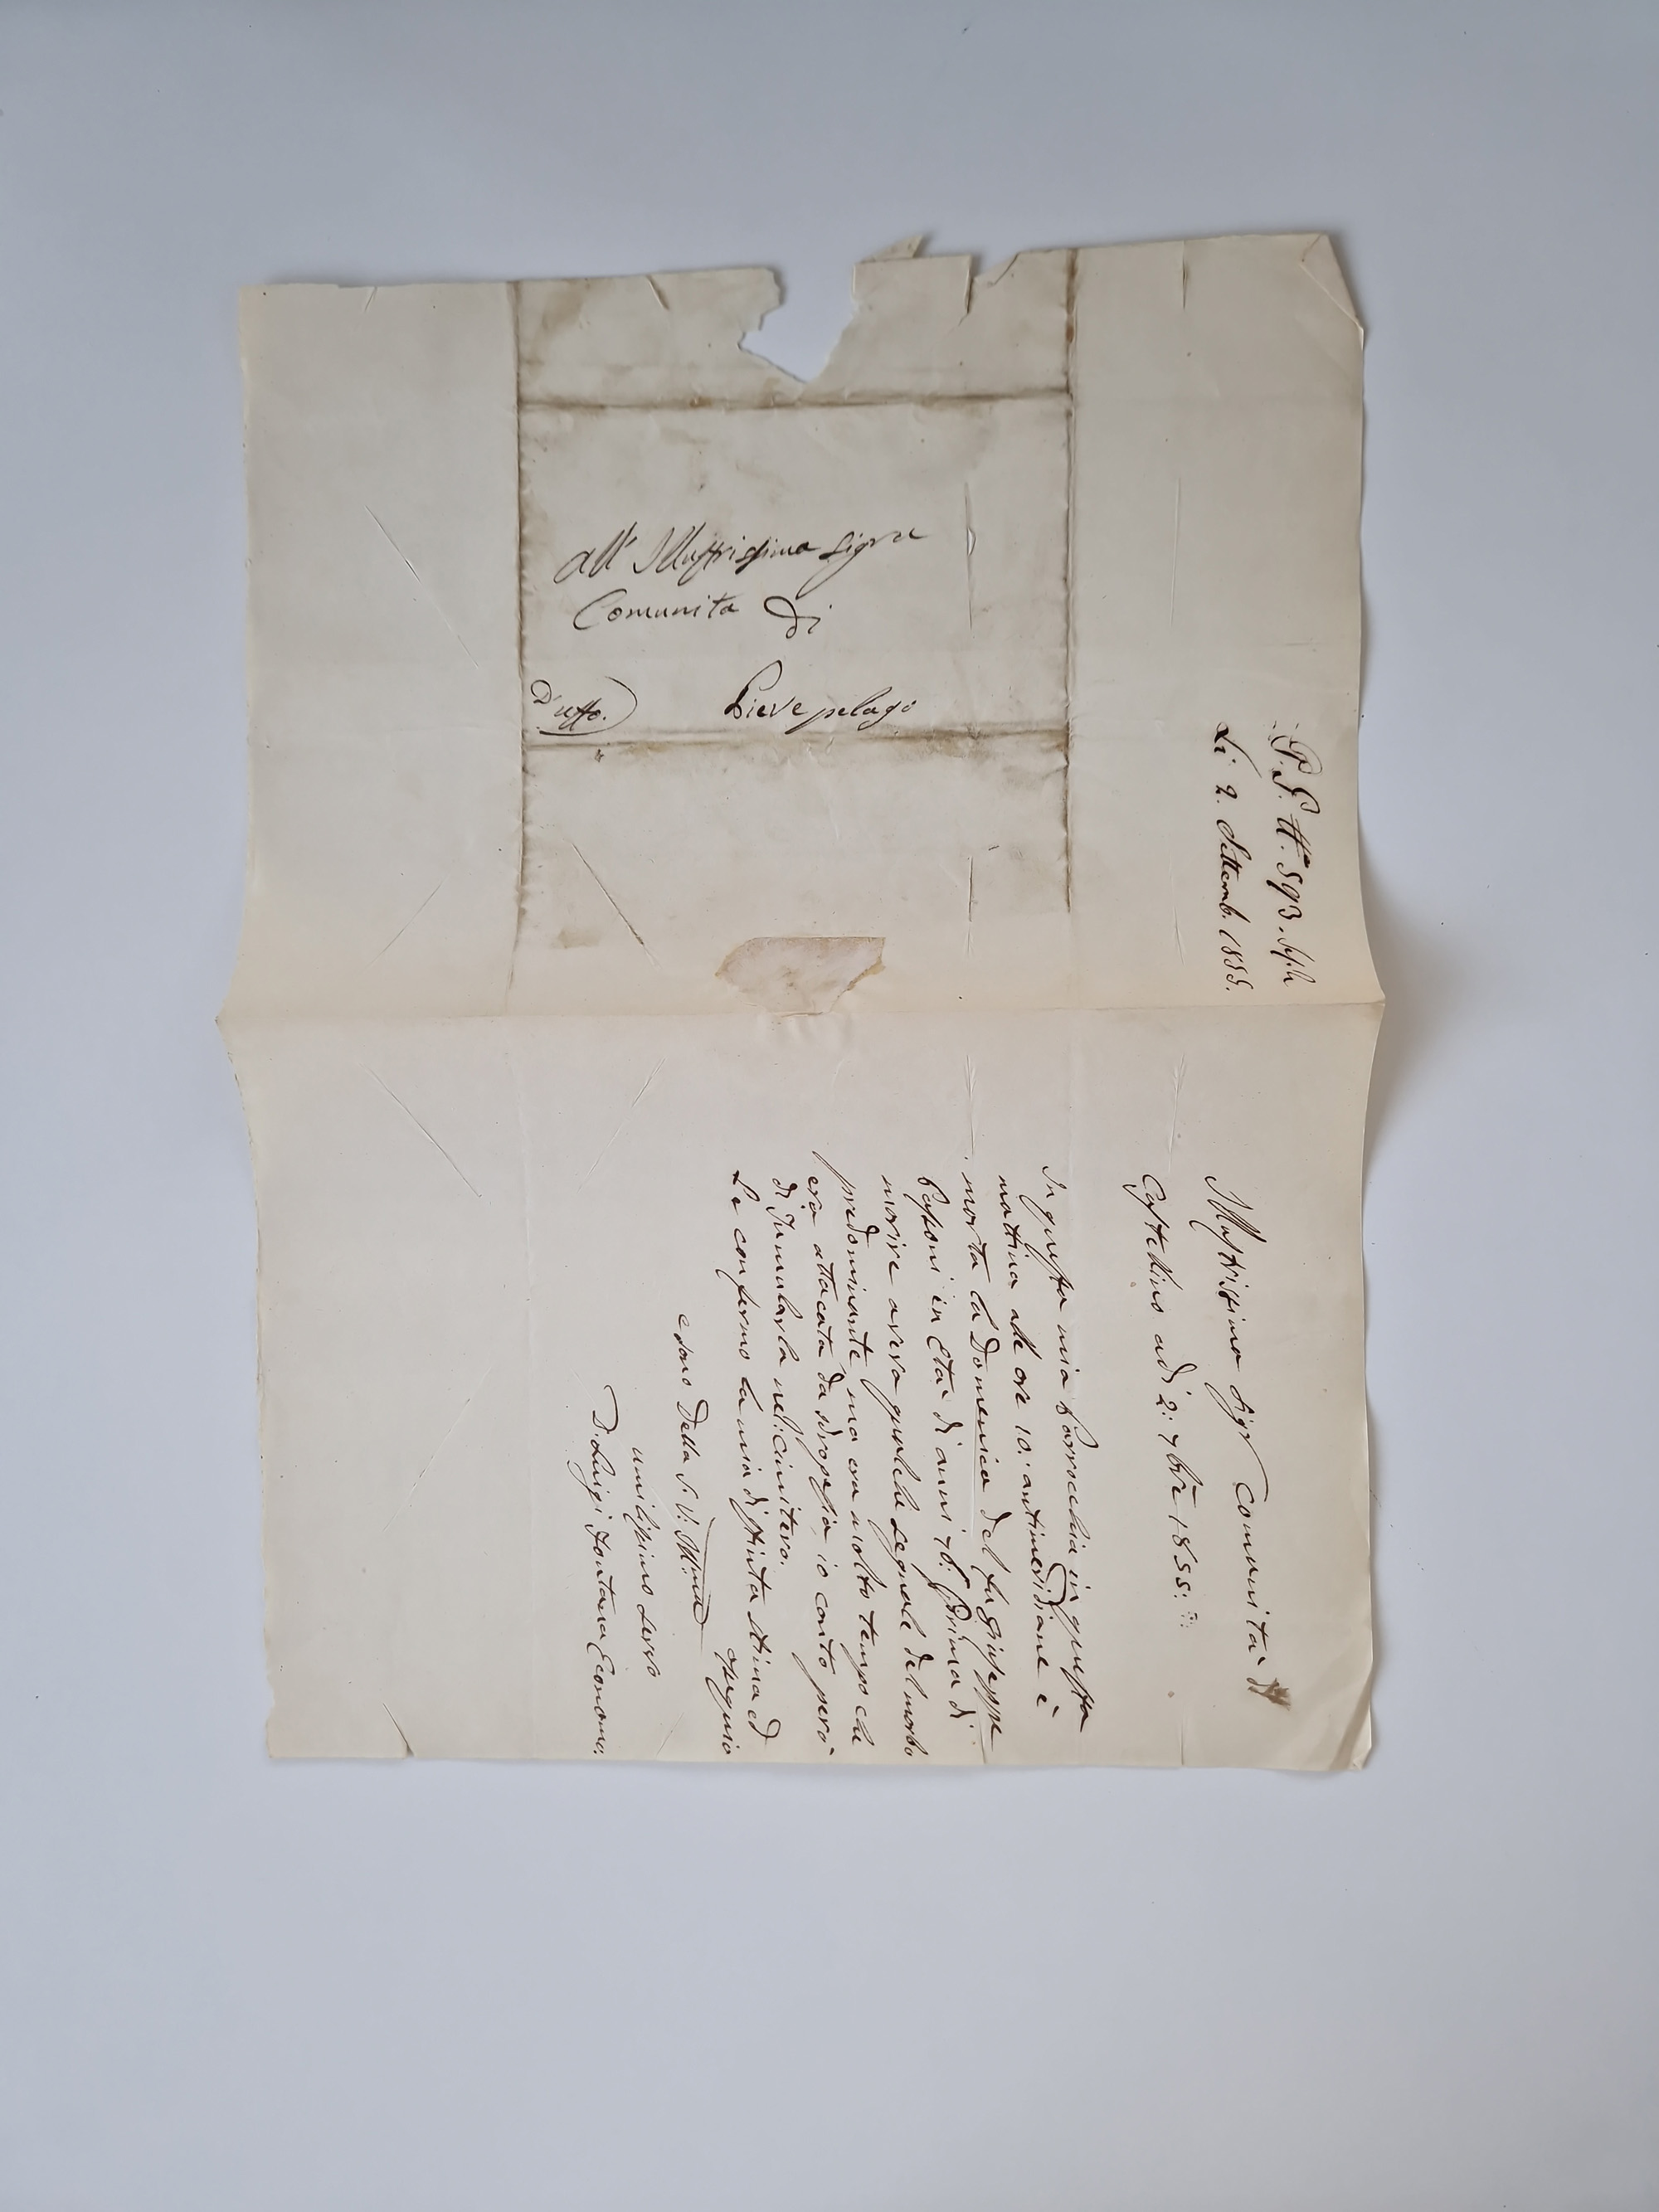 all' Illustrissima Sigra
Comunita di
Pieve pelago
D'uffo.
P. G. N.° 593.
Li 2. Settemb. 1855.
Illustrissima Sigr Comunita'
Castellino adi 2: 7bre 1855:
In questa mia Parrocchia in questa
mattina alle ore 10: antimeridiane è
morta la Domenica del fu Giuseppe
in età di anni 76: Prima di
morire aveva qualche segnale del morbo
predominante, ma era molto tempo che
era attacata da idropesia, io conto però
di Tumularla nel Cimitero.
Le confermo la mia distinta stima ed
ossequio
e sono Della S. V. Illma
umilissimo servo
D. Luigi Fontana Economo: